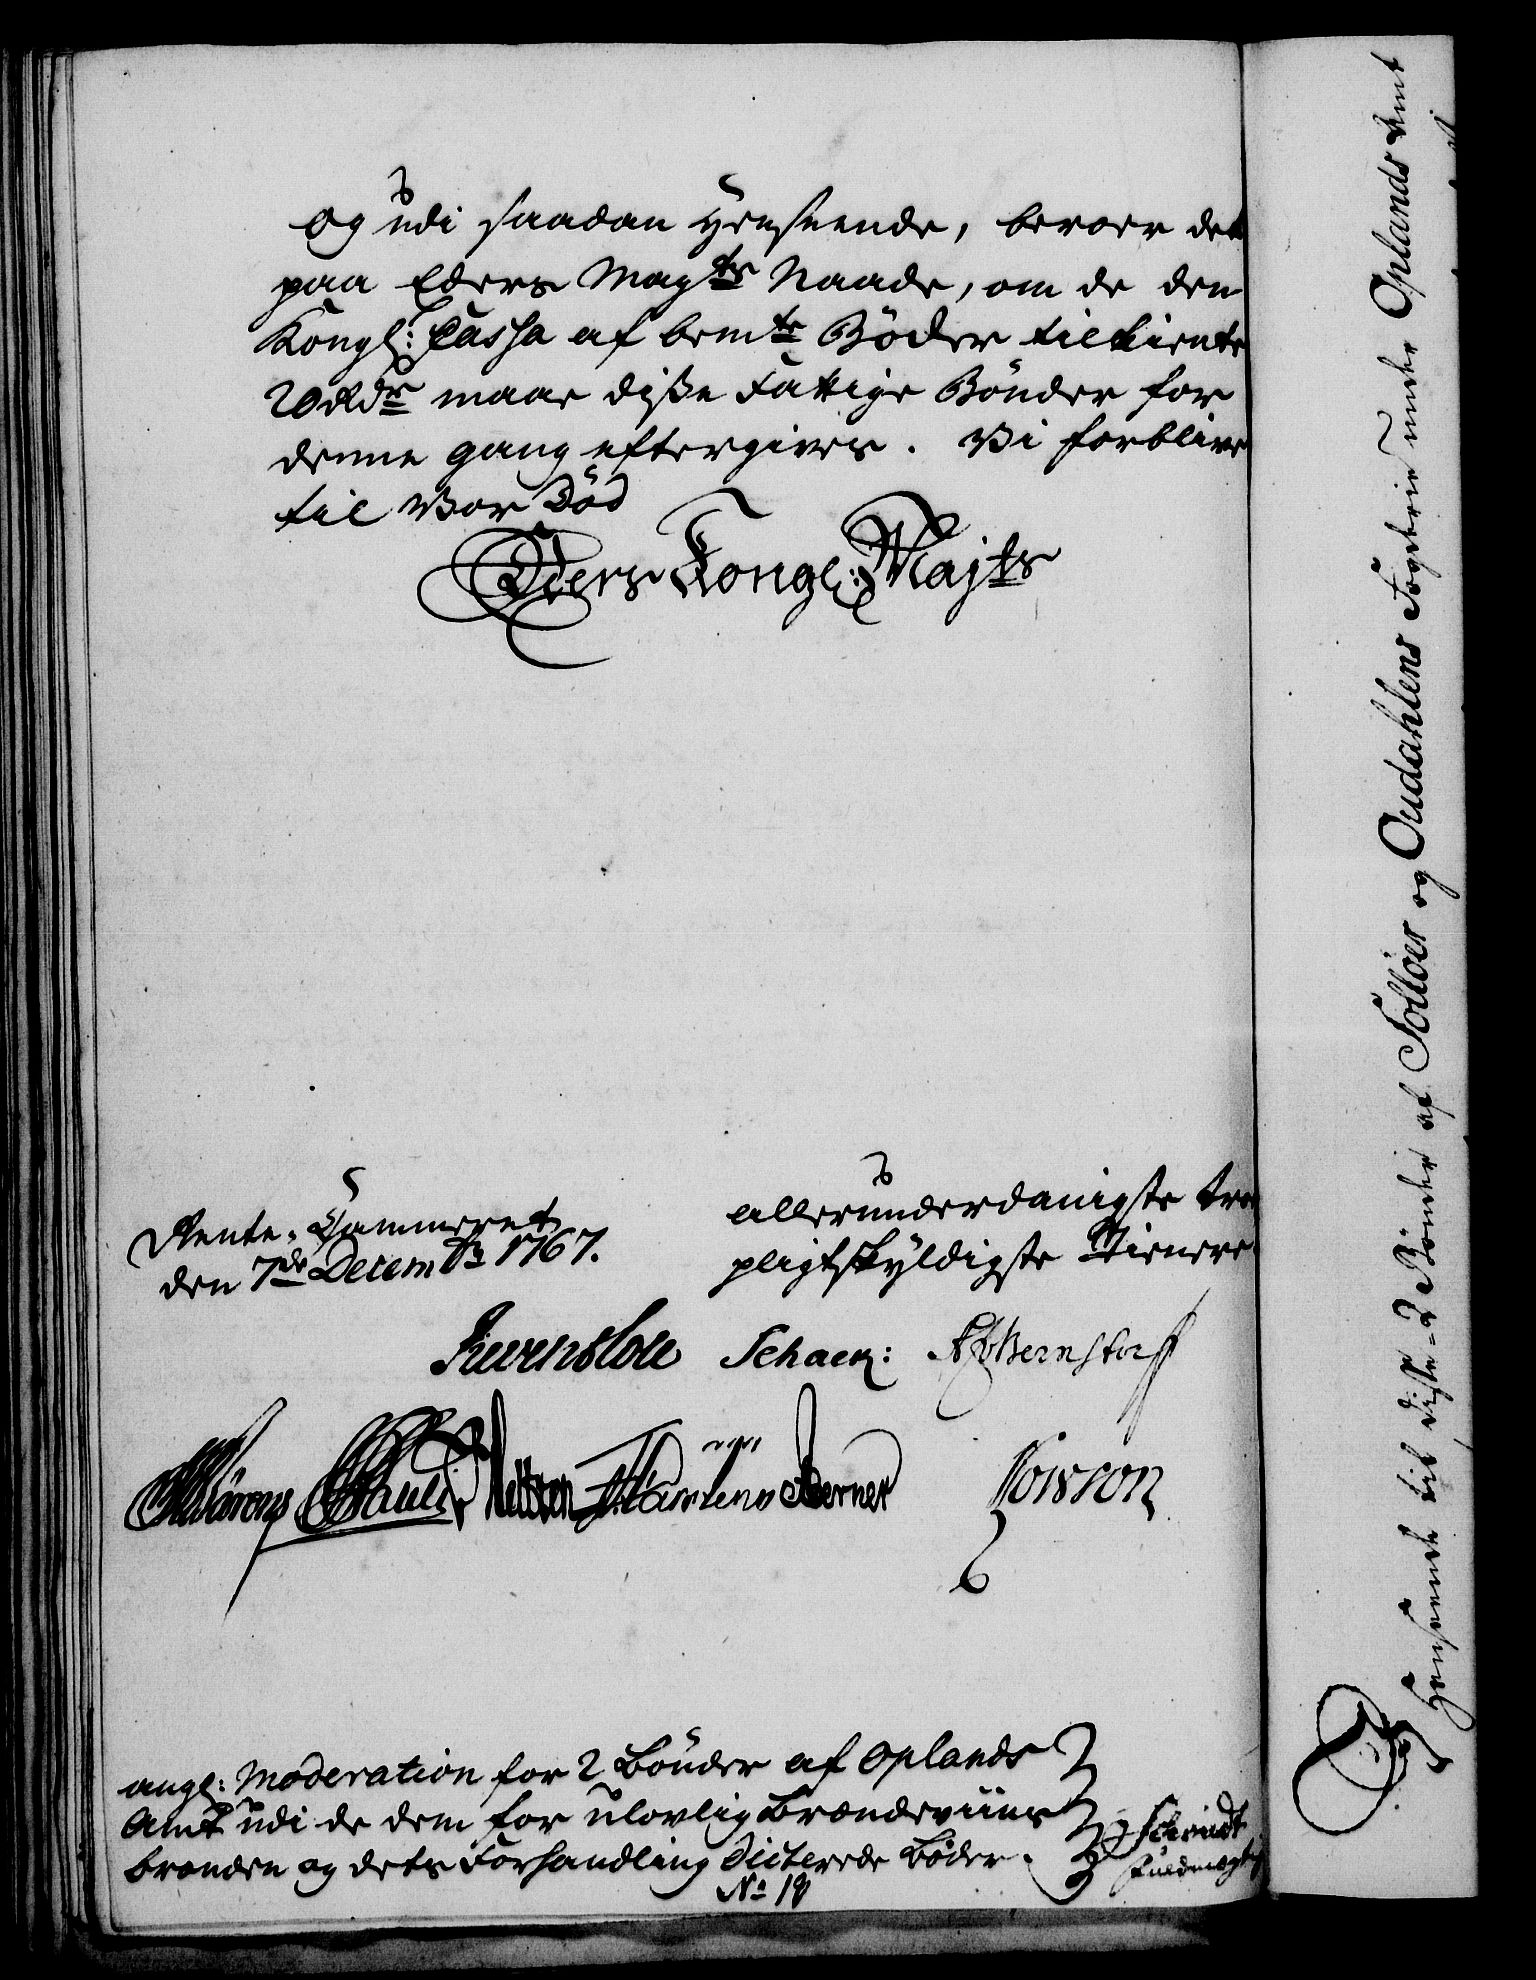 og udi saadan Henseende, beroer det
paa Eders Mayts Naade, om de den
Kongl: Cassa af bemte Bøder tilkiente
20 Rdr maae disse Fattige Bønder for
denne gang eftergives. Vi forblive
til Vor Død
Eders Kongl: Majts
Rente-Cammeret
den 7de Decembr 1767.
allerunderdanigste troe
pligtskyldigste Tienere
Reventlou Schack: Bernstorff
Pauli Berner
angl: Moderation for 2 Bønder af Oplands
Amt udi de dem for ulovlig Brændeviins
brænden og dets Forhandling Dicterede Bøder.
No 18
Schmidt
Fuldmægtig
I Henseende til disse 2 Bønder af Tolløer og Oudahlens Fogderie under Oplands Amt